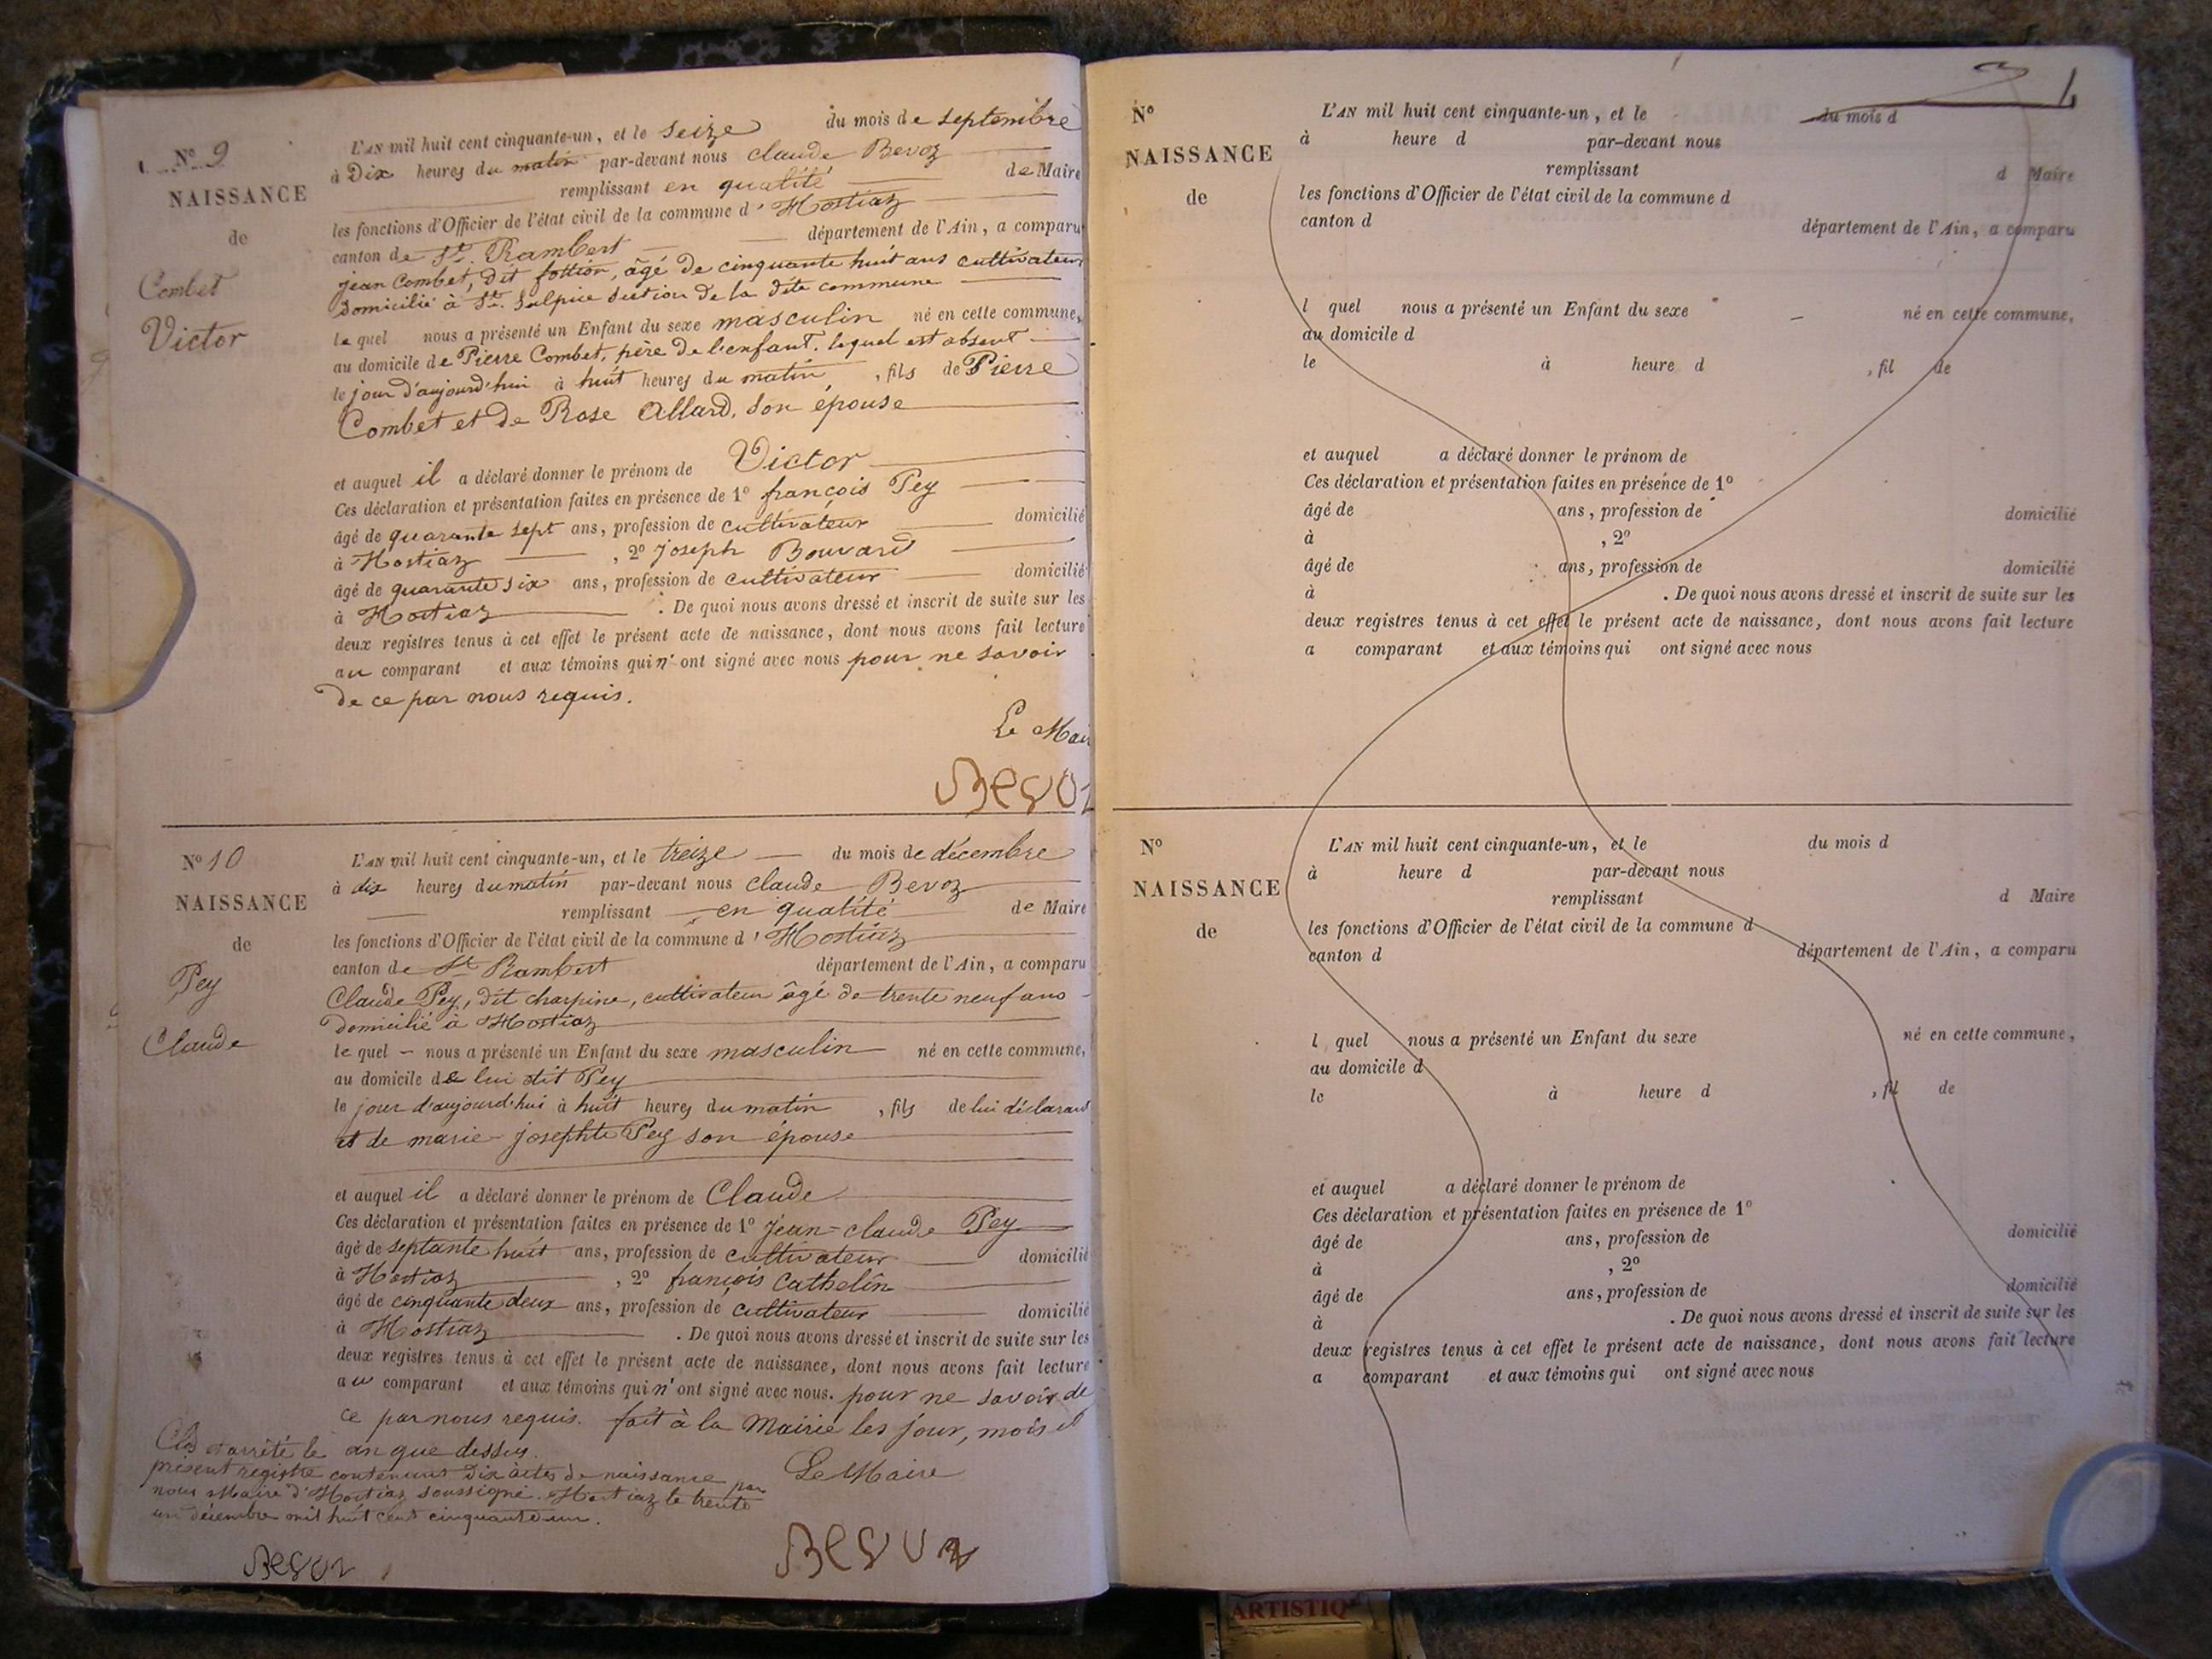 N° 9
NAISSANCE
de
Combet
Victor
L'AN mil huit cent cinquante-un, et le seize du mois de septembre
à Dix heures du matin par-devant nous Claude Bevoz
remplissant en qualité de Maire
les fonctions d'Officier de l'état civil de la commune d'Hostiaz
canton de St. Rambert département de l'Ain, a comparu
jean Combet, dit , âgé de cinquante huit ans cultivateur
domicilié à St. Sulpice section de la dite commune
lequel nous a présenté un Enfant du sexe masculin né en cette commune,
au domicile de Pierre Combet, père de l'enfant. lequel est absent
le jour d'aujourd'hui à huit heures du matin, fils de Pierre
Combet et de Rose Allard, son épouse
et auquel il a déclaré donner le prénom de Victor
Ces déclaration et présentation faites en présence de 1° françois Pey
âgé de quarante sept ans, profession de cultivateur domicilié
à Hostiaz , 2° joseph Bouvard
âgé de quarante six ans, profession de cultivateur domicilié
à Hostiaz . De quoi nous avons dressé et inscrit de suite sur les
deux registres tenus à cet effet le présent acte de naissance, dont nous avons fait lecture
au comparant et aux témoins qui n'ont signé avec nous pour ne savoir
de ce par nous requis.
Le Mai
Bevoz
N° 10
NAISSANCE
de
Pey
Claude
L'AN mil huit cent cinquante-un, et le treize du mois de décembre
à dix heures du matin par-devant nous Claude Bevoz
remplissant en qualité de Maire
les fonctions d'Officier de l'état civil de la commune d'Hostiaz
canton de St Rambert département de l'Ain, a comparu
Claude Pey, dit charpine, cultivateur âgé de trente neuf ans
domicilié à Hostiaz
lequel nous a présenté un Enfant du sexe masculin né en cette commune,
au domicile de lui dit Pey
le jour d'aujourd'hui à huit heures du matin, fils de lui déclarant
et de marie josephte Pey son épouse
et auquel il a déclaré donner le prénom de Claude
Ces déclaration et présentation faites en présence de 1° jean-claude Pey
âgé de septante huit ans, profession de cultivateur domicilié
à Hostiaz , 2° françois Cathelin
âgé de cinquante deux ans, profession de cultivateur domicilié
à Hostiaz . De quoi nous avons dressé et inscrit de suite sur les
deux registres tenus à cet effet le présent acte de naissance, dont nous avons fait lecture
au comparant et aux témoins qui n'ont signé avec nous. pour ne savoir de
ce par nous requis. fait à la Mairie les jour, mois et
an que dessus.
Le Maire
Bevoz
Clos et arrêté le
présent registre contenant Dix actes de naissance par
nous Maire d'Hostiaz soussigné. Hostiaz le trente
un décembre mil huit cent cinquante un.
Bevoz
N°
NAISSANCE
de
L'AN mil huit cent cinquante-un, et le du mois d
à heure d par-devant nous
remplissant d Maire
les fonctions d'Officier de l'état civil de la commune d
canton d département de l'Ain, a comparu
l quel nous a présenté un Enfant du sexe né en cette commune,
au domicile d
le à heure d , fil de
et auquel a déclaré donner le prénom de
Ces déclaration et présentation faites en présence de 1°
âgé de ans, profession de domicilié
à , 2°
âgé de ans, profession de domicilié
à . De quoi nous avons dressé et inscrit de suite sur les
deux registres tenus à cet effet le présent acte de naissance, dont nous avons fait lecture
a comparant et aux témoins qui ont signé avec nous
N°
NAISSANCE
de
L'AN mil huit cent cinquante-un, et le du mois d
à heure d par-devant nous
remplissant d Maire
les fonctions d'Officier de l'état civil de la commune d
canton d département de l'Ain, a comparu
l quel nous a présenté un Enfant du sexe né en cette commune,
au domicile d
le à heure d , fil de
et auquel a déclaré donner le prénom de
Ces déclaration et présentation faites en présence de 1°
âgé de ans, profession de domicilié
à , 2°
âgé de ans, profession de domicilié
à . De quoi nous avons dressé et inscrit de suite sur les
deux registres tenus à cet effet le présent acte de naissance, dont nous avons fait lecture
a comparant et aux témoins qui ont signé avec nous
ARTISTIQ